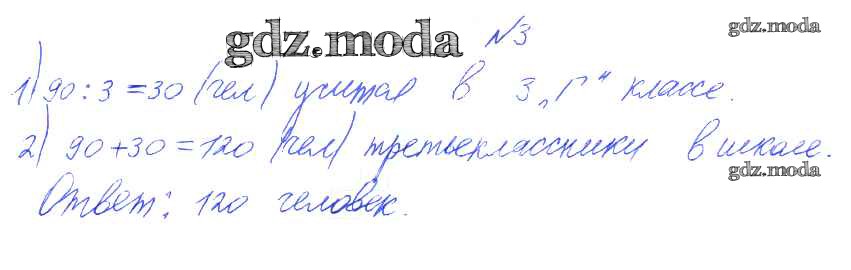 gdz.moda
gdz.moda №3
1) 90 : 3 = 30 (чел) учится в 3 „Г“ классе.
2) 90 + 30 = 120 (чел) третьеклассники в школе.
gdz.moda
Ответ: 120 человек.